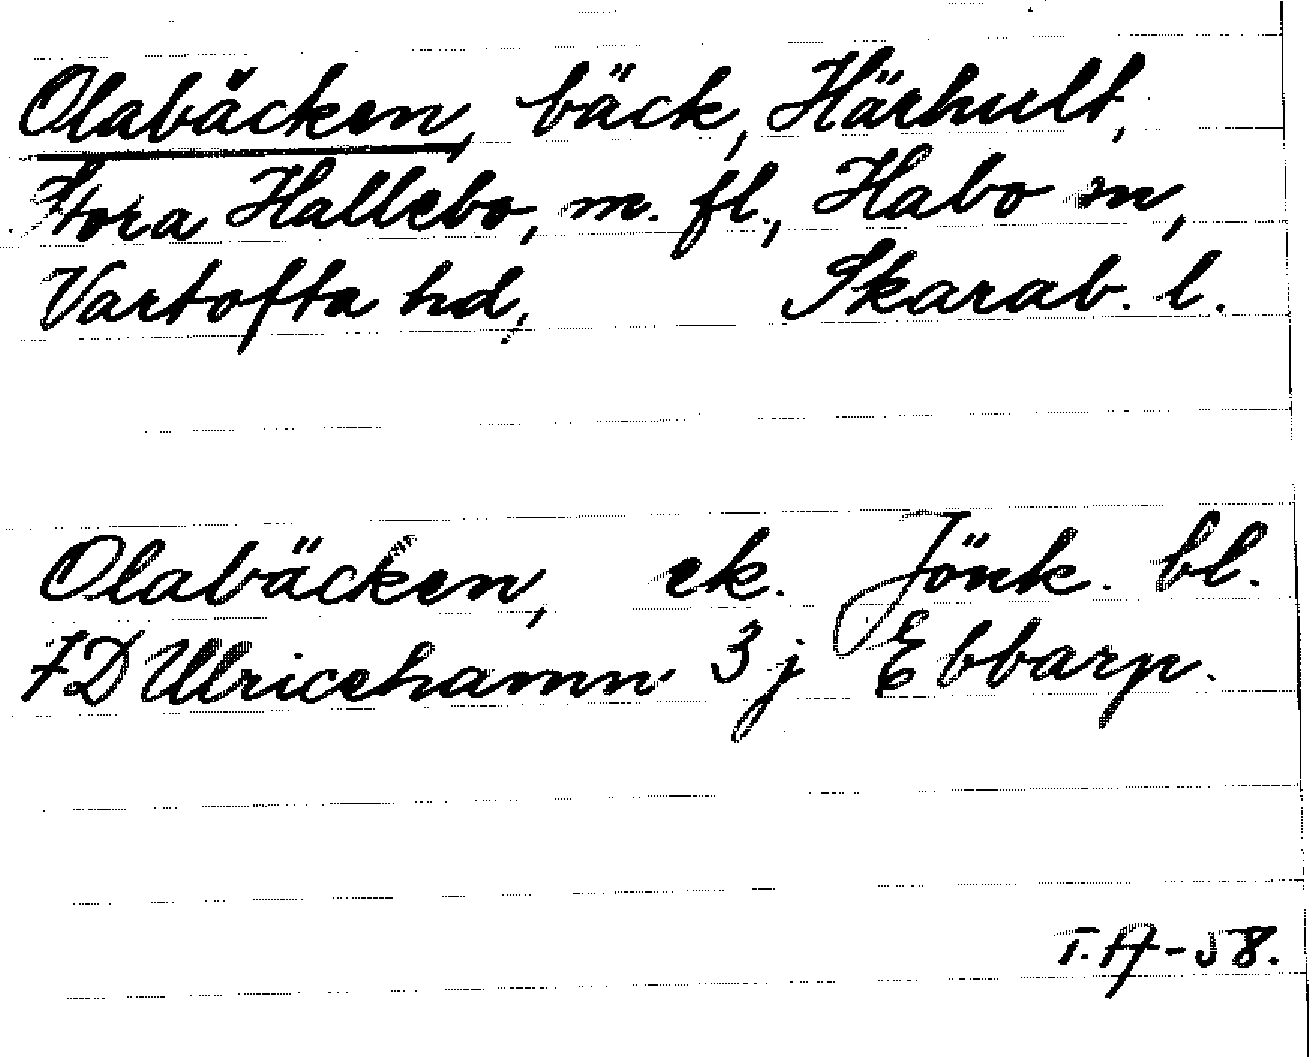 Olabäcken, bäck, Härhult,
Stora Hallebo, m. fl., Habo sn,
Vartofta hd, Skarab. l.
Olabäcken, ek. Jönk. bl.
FD Ulricehamn 3 j Ebbarp.
T.A-58.